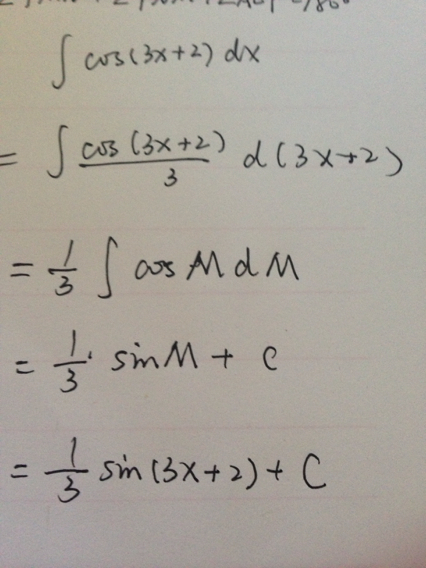 ∫ cos(3x+2) dx
= ∫ cos(3x+2)/3 d(3x+2)
= 1/3 ∫ cos M d M
= 1/3 · sin M + C
= 1/3 sin(3x+2) + C